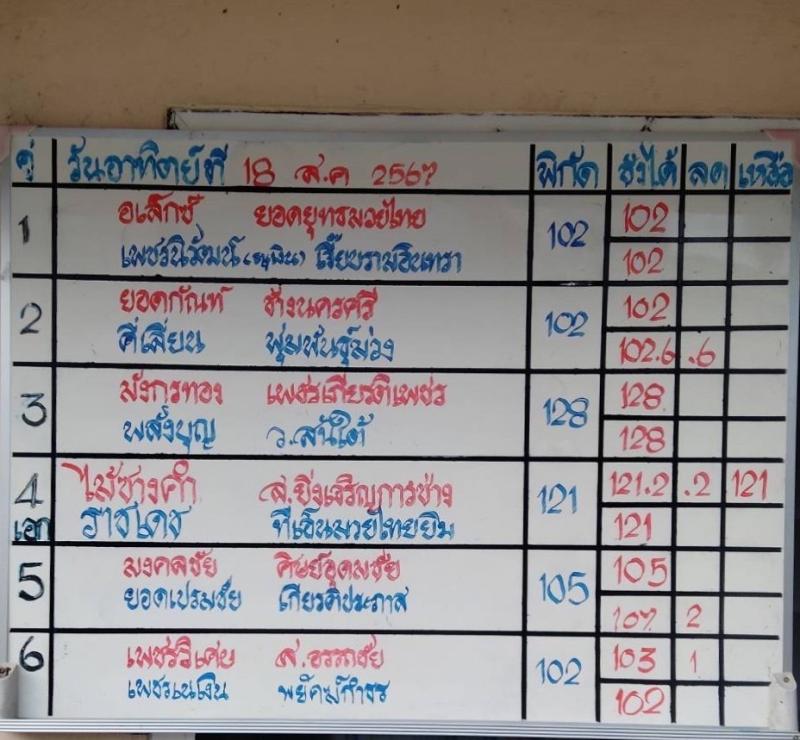 คู่ วันอาทิตย์ที่ 18 ส.ค 2567 พิกัด ชั่งได้ ลด เหลือ
1 อเล็กซ์ ยอดยุทธมวยไทย 102 102
เพชรนิวัฒน์ เงี๊ยบรามอินทรา 102
2 ยอดกัณฑ์ ช้างนครศรี 102 102
คีเลียน พุ่มพันธุ์ม่วง 102.6 .6
3 มังกรทอง เพชรเกียรติเพชร 128 128
พลังบุญ ว.สันใต้ 128
4 ไม้ซางคำ ส.ยิ่งเจริญการช่าง 121 121.2 .2 121
เอก ราชเดช ทีเอ็นมวยไทยยิม 121
5 มงคลชัย ศิษย์อุดมชัย 105 105
ยอดเปรมชัย เกียรติประภาส 107 2
6 เพชรวิเศษ ส.อรรถชัย 102 103 1
เพชรเนเงิน พยัคฆ์กำธร 102